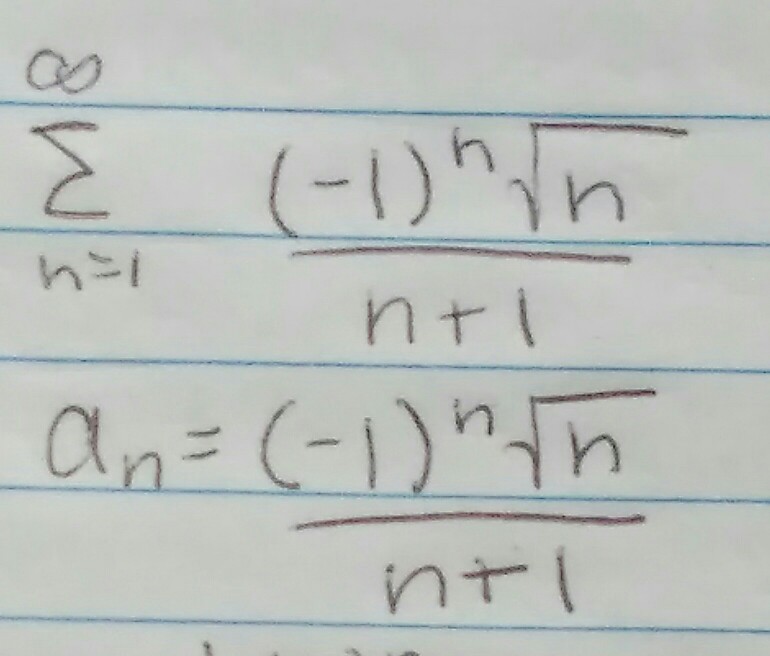 ∞
Σ (-1)^n √n
n=1 n+1
a_n = (-1)^n √n
n+1